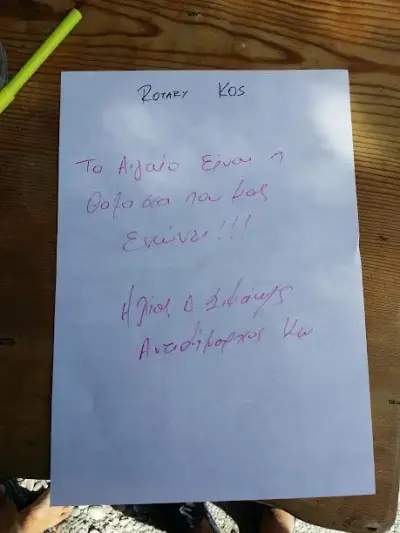 ROTARY KOS
Το Αιγαίο Είναι η
Θαλασσα που μας
Ενώνει!!!
Ηλίας Δ Σιφάκης
Αντιδήμαρχος Κω